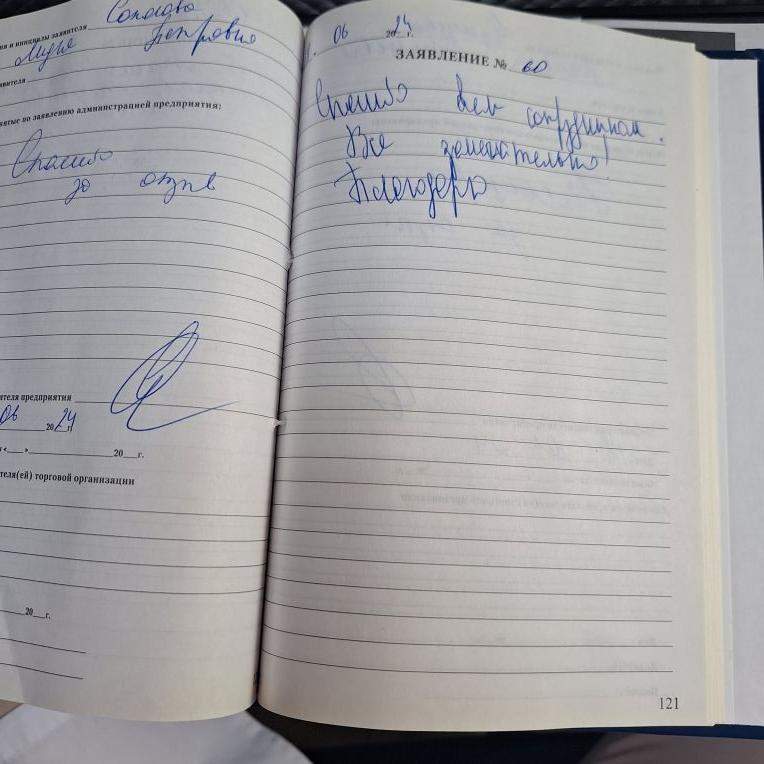 ия и инициалы заявителя Соколова
Лидия Петровна
явителя
нятые по заявлению администрацией предприятия:
Спасибо
за отзыв
ителя предприятия
06 2024 г.
«___» 20___г.
теля(ей) торговой организации
20___г.
06 2024 г.
ЗАЯВЛЕНИЕ № 60
Спасибо всем сотрудникам.
Все замечательно!
Благодарю
121